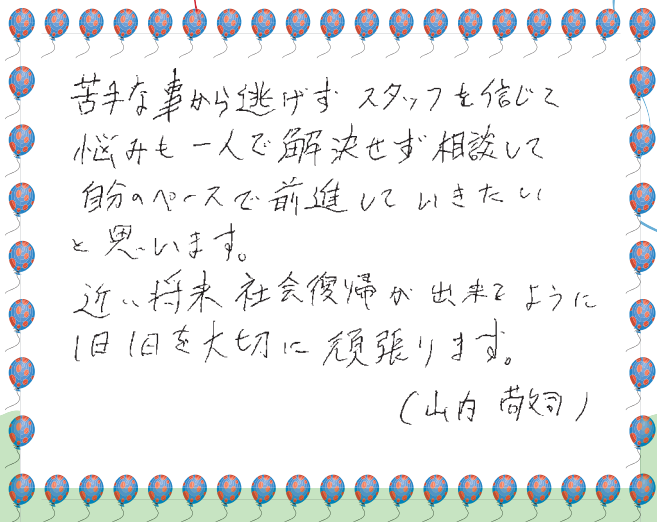 苦手な事から逃げず スタッフを信じて
悩みも一人で解決せず相談して
自分のペースで前進していきたい
と思います。
近い将来 社会復帰が出来るように
1日1日を大切に頑張ります。
(山内 敬司)